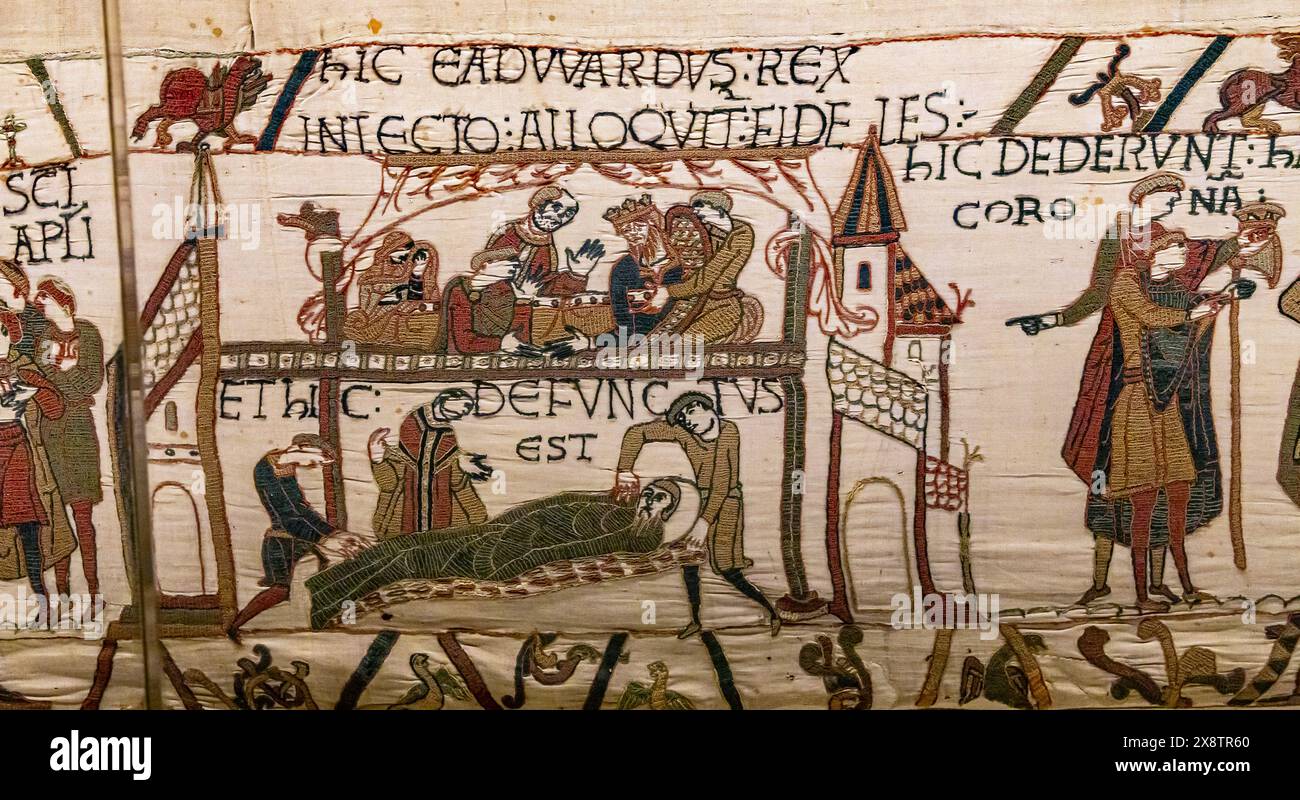 hIC EADVVARDVS : REX
IN LECTO : ALLOQVIT : FIDELES :
SCI
APLI
hIC DEDERVNT : hA
CORO NA :
ET hIC : DEFVNCTUS
EST
alamy
Image ID: 2X8TR60
www.alamy.com